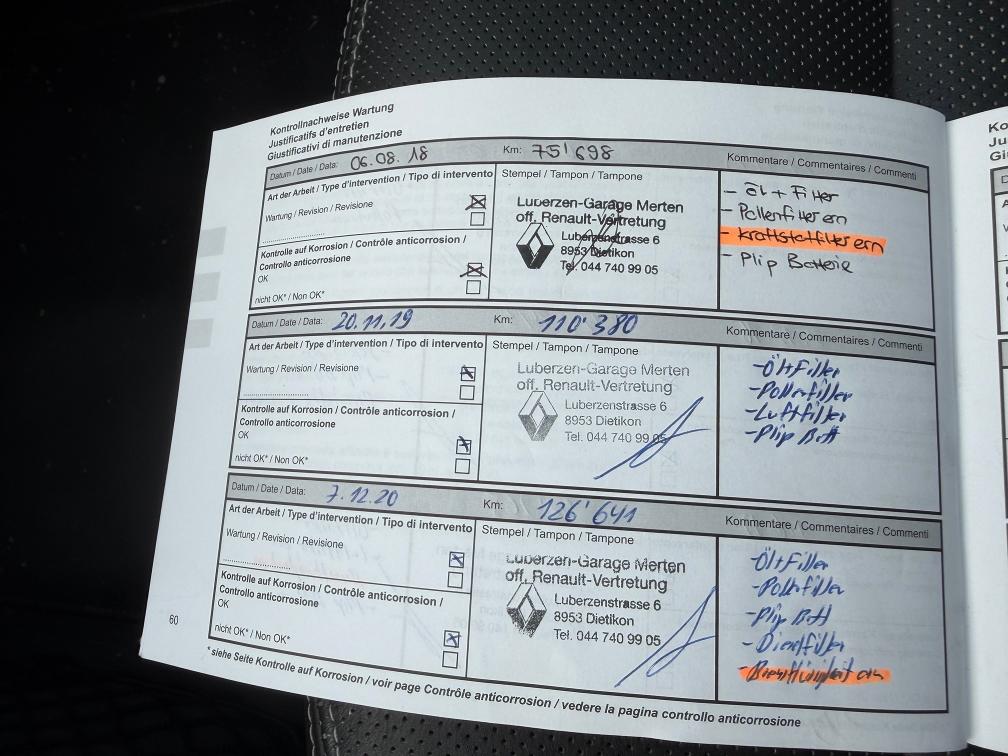 Kontrollnachweise Wartung
Justificatifs d'entretien
Giustificativi di manutenzione
Datum / Date / Data: 06.08.18 Km: 75'698 Kommentare / Commentaires / Commenti
Art der Arbeit / Type d'intervention / Tipo di intervento
Stempel / Tampon / Tampone
Wartung / Revision / Revisione
Kontrolle auf Korrosion / Contrôle anticorrosion /
Controllo anticorrosione
OK
nicht OK* / Non OK*
Luberzen-Garage Merten
off. Renault-Vertretung
Luberzenstrasse 6
8953 Dietikon
Tel. 044 740 99 05
- Öl + Filter
- Pollenfilter ern
- Kraftstofilter ern
- Plip Batterie
Datum / Date / Data: 20.11.19 Km: 110'380 Kommentare / Commentaires / Commenti
Art der Arbeit / Type d'intervention / Tipo di intervento
Stempel / Tampon / Tampone
Wartung / Revision / Revisione
Kontrolle auf Korrosion / Contrôle anticorrosion /
Controllo anticorrosione
OK
nicht OK* / Non OK*
Luberzen-Garage Merten
off. Renault-Vertretung
Luberzenstrasse 6
8953 Dietikon
Tel. 044 740 99 05
- Öl+Filter
- Pollenfilter
- Luftfilter
- Plip Batt
Datum / Date / Data: 7.12.20 Km: 126'641 Kommentare / Commentaires / Commenti
Art der Arbeit / Type d'intervention / Tipo di intervento
Stempel / Tampon / Tampone
Wartung / Revision / Revisione
Kontrolle auf Korrosion / Contrôle anticorrosion /
Controllo anticorrosione
OK
nicht OK* / Non OK*
Luberzen-Garage Merten
off. Renault-Vertretung
Luberzenstrasse 6
8953 Dietikon
Tel. 044 740 99 05
- Öl+Filter
- Pollenfilter
- Plip Batt
- Dieselfilter
60
* siehe Seite Kontrolle auf Korrosion / voir page Contrôle anticorrosion / vedere la pagina controllo anticorrosione